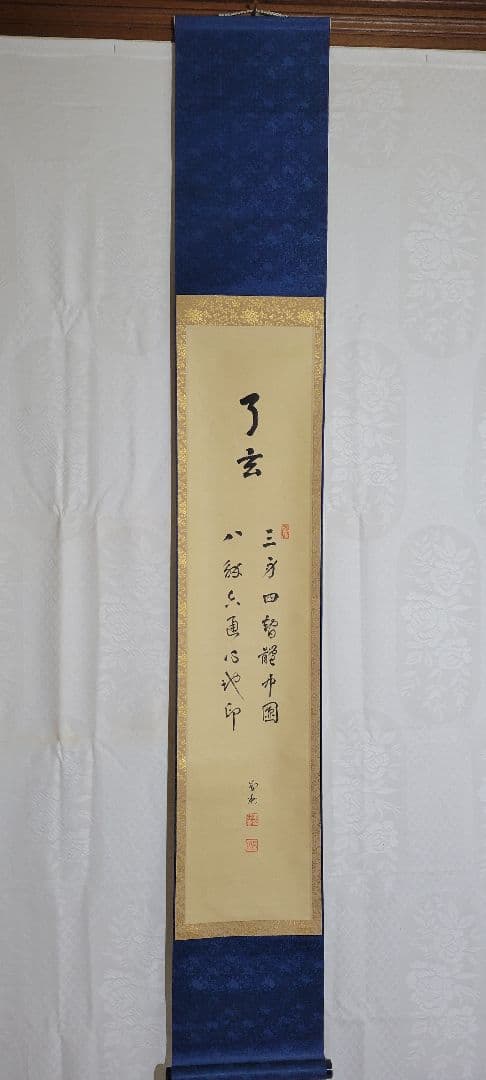 了玄
三身四智體中圓
八解六通心地印